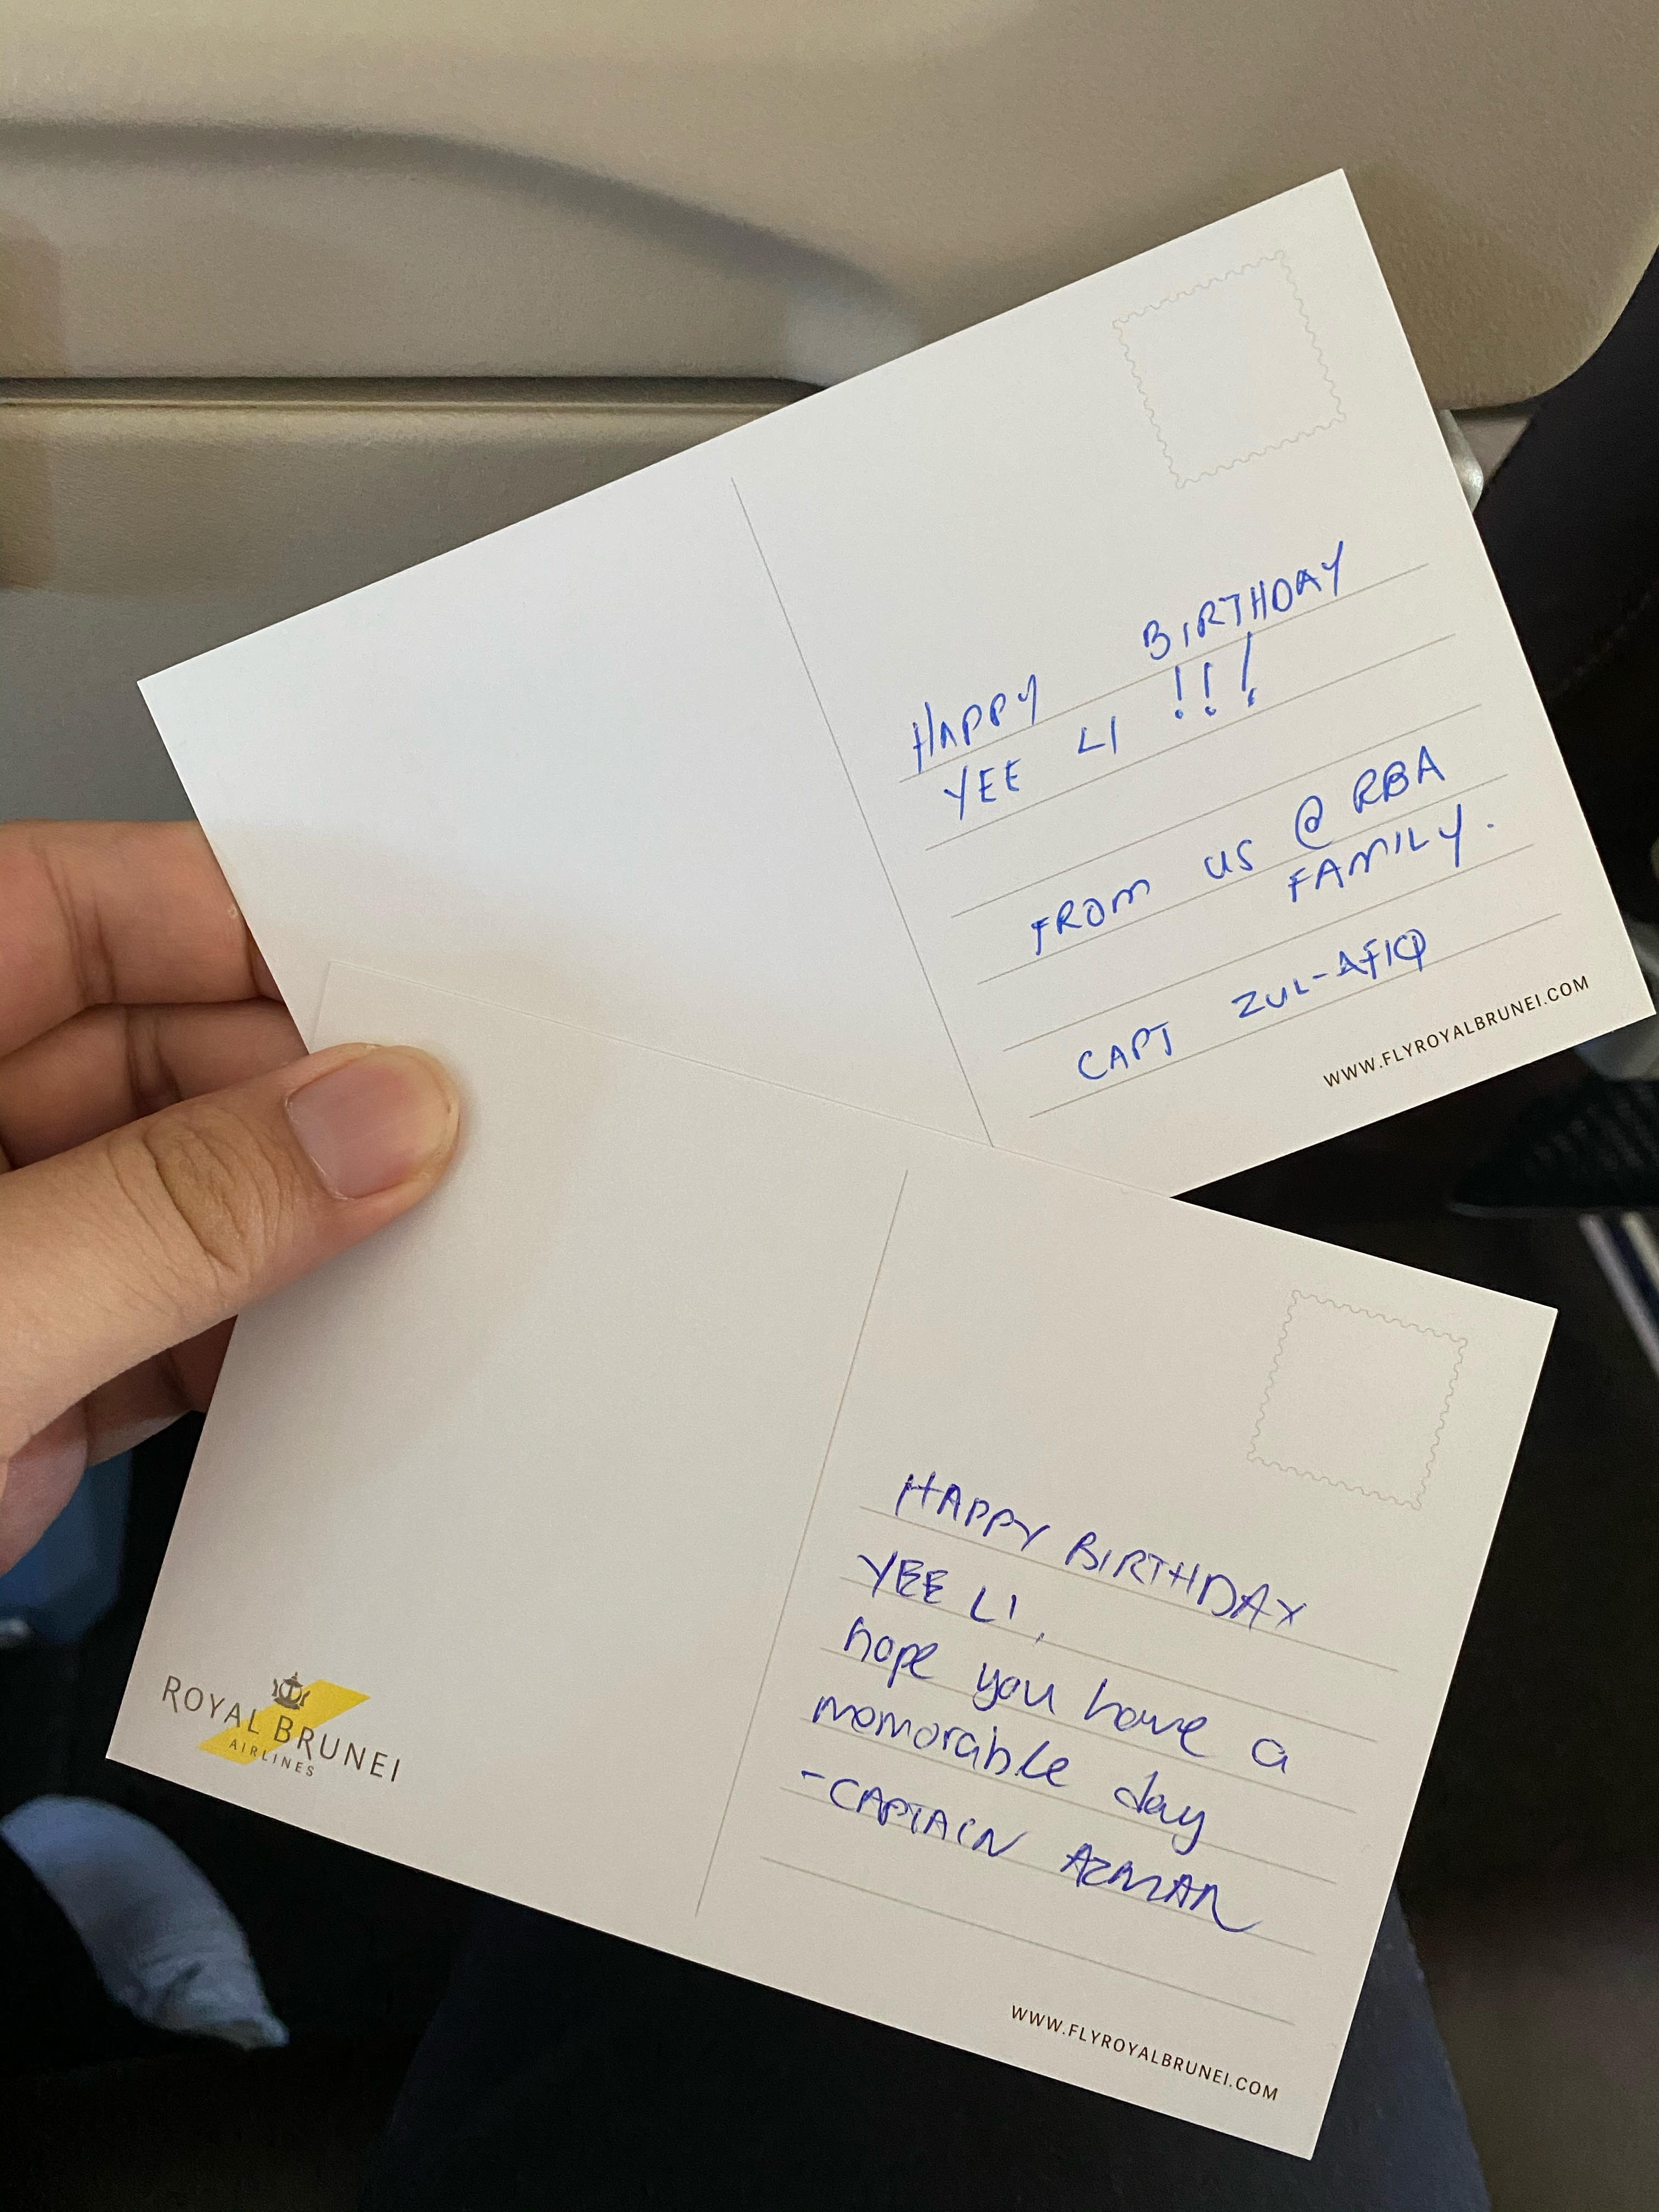 HAPPY BIRTHDAY
YEE LI !!!
FROM US @ RBA
FAMILY.
CAPT ZUL-AFIQ
WWW.FLYROYALBRUNEI.COM
HAPPY BIRTHDAY
YEE LI,
hope you have a
momorable day
-CAPTAIN AZMAN
ROYAL BRUNEI
AIRLINES
WWW.FLYROYALBRUNEI.COM